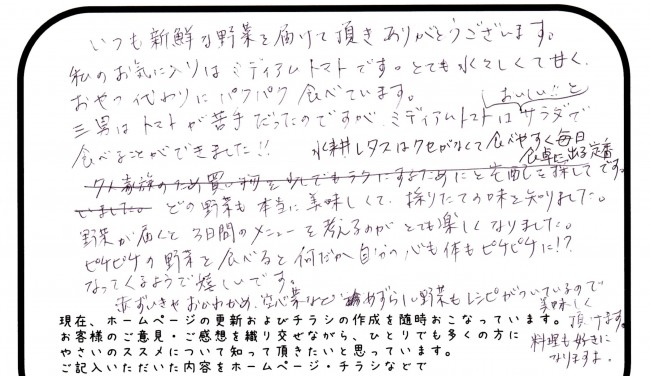 いつも新鮮な野菜を届けて頂きありがとうございます。
私のお気に入りはミディアムトマトです。とても水々しくて甘く、
おやつ代わりにパクパク食べています。
三男はトマトが苦手だったのですが、ミディアムトマトはおいしい!と サラダで
食べることができました!! 水耕レタスはクセがなくて食べやすく毎日
食卓に出る定番です。
7人家族のため買い物を少しでもラクにするためにと宅配を探して
いました。どの野菜も本当に美味しくて、採りたての味を知りました。
野菜が届くと3日間のメニューを考えるのがとても楽しくなりました。
ピチピチの野菜を食べると何だか自分の心も体もピチピチに!?
なってくるようで嬉しいです。
赤ずいきやおかわかめ、空心菜など めずらしい野菜もレシピがついているので
美味しく
頂けます。
料理も好きに
なりますよ。
現在、ホームページの更新およびチラシの作成を随時おこなっています。
お客様のご意見・ご感想を織り交ぜながら、ひとりでも多くの方に
やさいのススメについて知って頂きたいと思っています。
ご記入いただいた内容をホームページ・チラシなどで